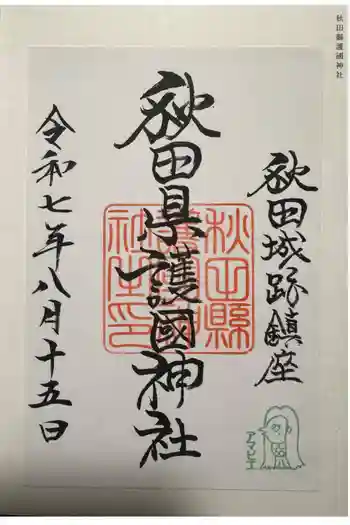 秋田縣護國神社
秋田城跡鎮座
秋田県護國神社
令和七年八月十五日
秋田縣
社之印
アマビエ